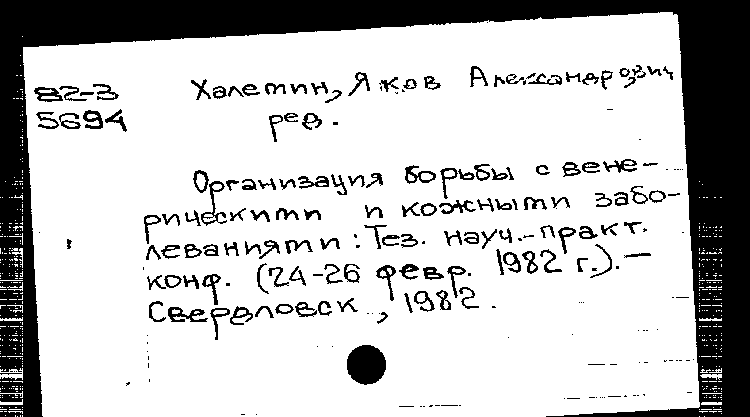 82-3
5694
Халемин, Яков Александрович
ред.
Организация борьбы с вене-
рическими и кожными забо-
леваниями: Тез. науч.-практ.
конф. (24-26 февр. 1982 г.).—
Свердловск, 1982.